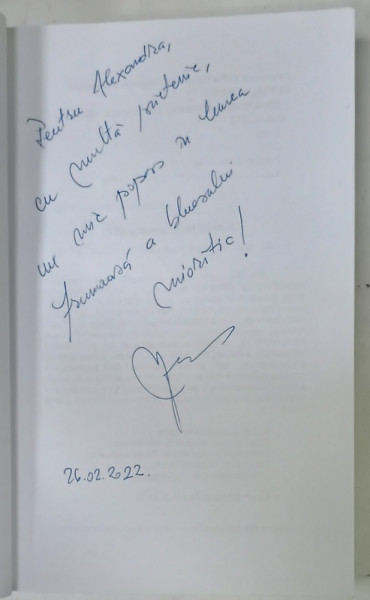 Pentru Alexandra,
cu multă prietenie,
un mic popas în lumea
frumoasă a bluesului
mioritic!
26.02.2022.